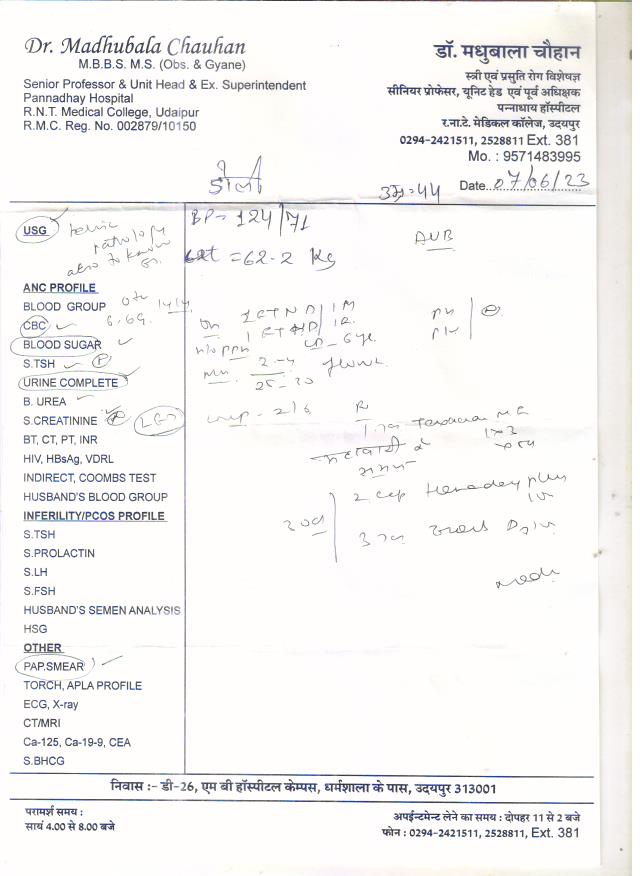 Dr. Madhubala Chauhan
M.B.B.S. M.S. (Obs. & Gyane)
Senior Professor & Unit Head & Ex. Superintendent
Pannadhay Hospital
R.N.T. Medical College, Udaipur
R.M.C. Reg. No. 002879/10150
डॉ. मधुबाला चौहान
स्त्री एवं प्रसुति रोग विशेषज्ञ
सीनियर प्रोफेसर, यूनिट हेड एवं पूर्व अधिक्षक
पन्नाधाय हॉस्पीटल
र.ना.टे. मेडिकल कॉलेज, उदयपुर
0294-2421511, 2528811 Ext. 381
Mo. : 9571483995
डोली
उम्र=44
Date..07/06/23
USG
pelvic
pathology
also to know
BP- 124/71
wt = 62.2 Kg
AUB
ANC PROFILE
BLOOD GROUP
CBC
BLOOD SUGAR
S.TSH
URINE COMPLETE
B. UREA
S.CREATININE
BT, CT, PT, INR
HIV, HBsAg, VDRL
INDIRECT, COOMBS TEST
HUSBAND'S BLOOD GROUP
INFERILITY/PCOS PROFILE
S.TSH
S.PROLACTIN
S.LH
S.FSH
HUSBAND'S SEMEN ANALYSIS
HSG
OTHER
PAP.SMEAR
TORCH, APLA PROFILE
ECG, X-ray
CT/MRI
Ca-125, Ca-19-9, CEA
S.BHCG
1 FTND/1M
25-30
LMP - 2/6
R
1x3
2 cap
निवास :- डी-26, एम बी हॉस्पीटल केम्पस, धर्मशाला के पास, उदयपुर 313001
परामर्श समय :
सायं 4.00 से 8.00 बजे
अपॉइन्टमेन्ट लेने का समय : दोपहर 11 से 2 बजे
फोन : 0294-2421511, 2528811, Ext. 381